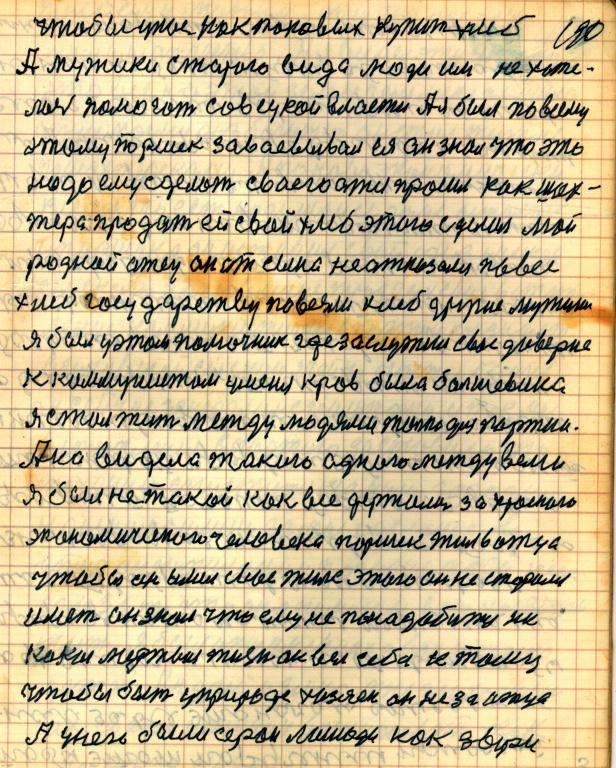 чтобы у нас как таковых купит хлеб 190
А мужики старого вида люди им не хоте-
лос помогат совецкой власти Ая был по всему
этому поршек заваевывал ея он знал что это
надо ему сделат сваего атца просил как шах-
тера продат ей свой хлеб этого сделал мой
родной атец он от сына неатказалп повез
хлеб государству повезли хлеб другие мужики
я был уэтом помочник где заслужил свае доверие
к коммунистом уменя кров была болшевика
я стал жит между людями толко для партии.
Ана видела такого одного между всеми
я был не такой как все держали за красного
экономического человека поршек жил ватца
чтобы он имел свае тило этого он не старался
имет он знал что ему не понадобится ни
какая мертвая жизн он вел себа к тому
чтобы быт уприроде хазяен он не за атца
А унего были серои лошади как звери